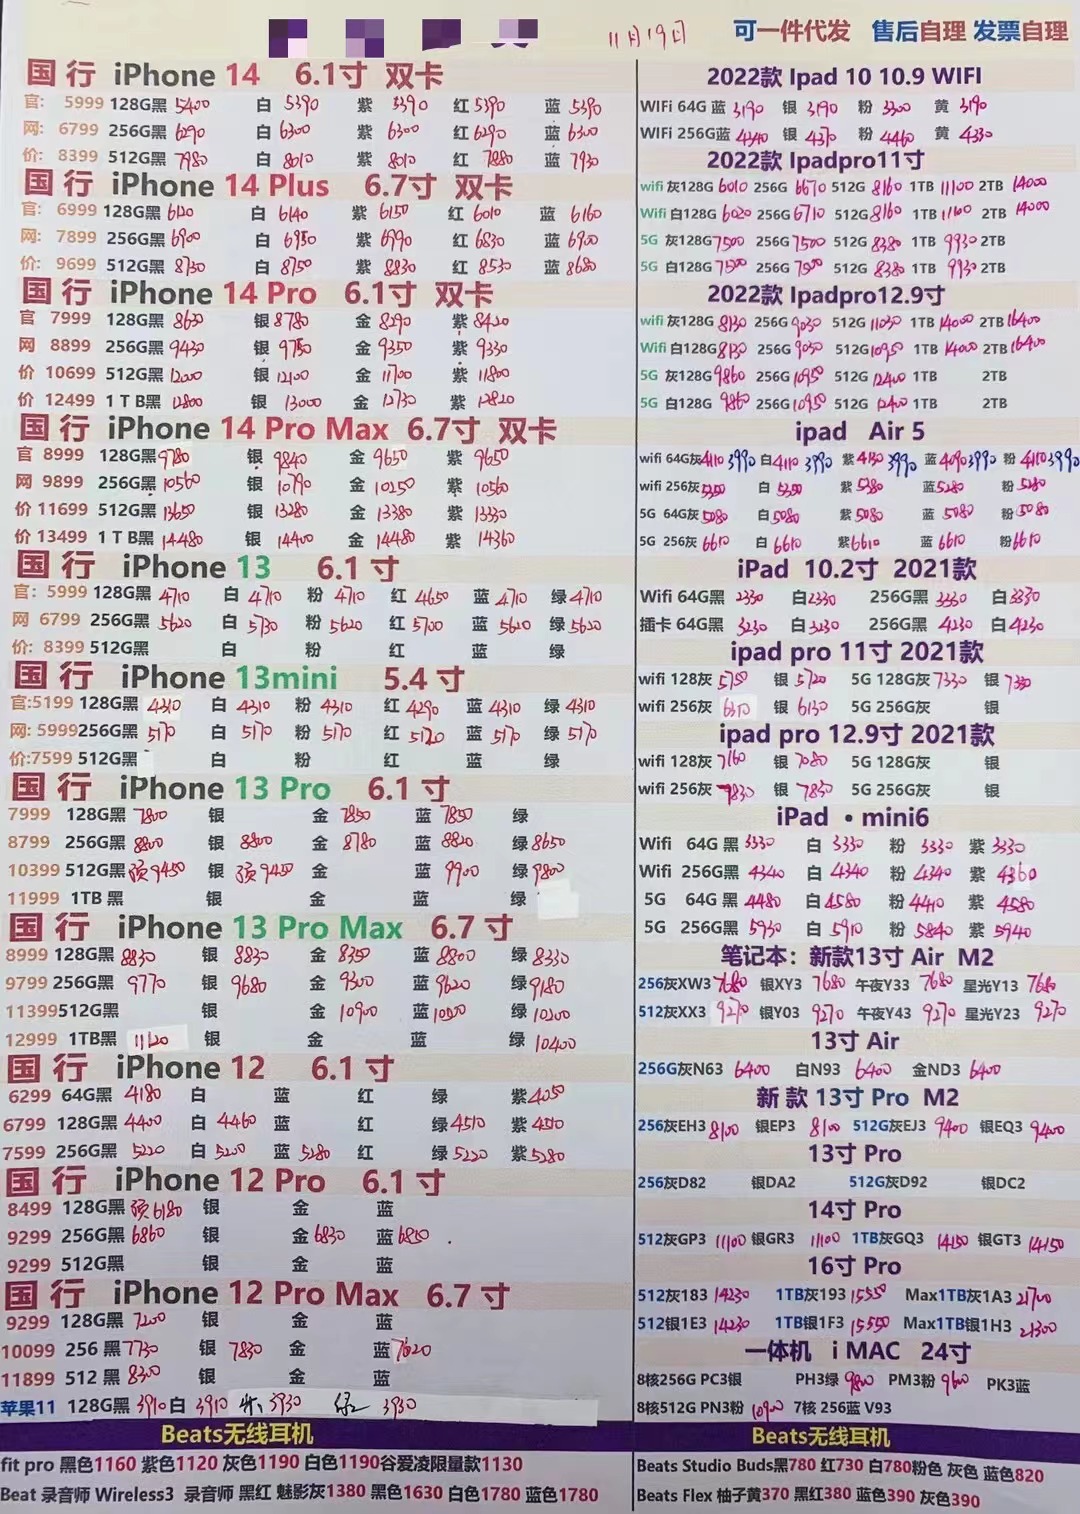 11月19日
可一件代发 售后自理 发票自理
国行 iPhone 14 6.1寸 双卡
官: 5999 128G黑 5400 白 5390 紫 5390 红 5390 蓝 5390
网: 6799 256G黑 6290 白 6300 紫 6300 红 6290 蓝 6300
价: 8399 512G黑 7980 白 8010 紫 8010 红 7880 蓝 7930
国行 iPhone 14 Plus 6.7寸 双卡
官: 6999 128G黑 6120 白 6140 紫 6150 红 6010 蓝 6160
网: 7899 256G黑 6900 白 6950 紫 6990 红 6830 蓝 6900
价: 9699 512G黑 8730 白 8750 紫 8830 红 8530 蓝 8680
国行 iPhone 14 Pro 6.1寸 双卡
官 7999 128G黑 8620 银 8780 金 8290 紫 8420
网 8899 256G黑 9430 银 9750 金 9350 紫 9330
价 10699 512G黑 12000 银 12100 金 11700 紫 11800
价 12499 1TB黑 12800 银 13000 金 12730 紫 12820
国行 iPhone 14 Pro Max 6.7寸 双卡
官 8999 128G黑 9780 银 9840 金 9650 紫 9650
网 9899 256G黑 10560 银 10790 金 10250 紫 10560
价 11699 512G黑 13650 银 13280 金 13380 紫 13330
价 13499 1TB黑 14480 银 14400 金 14480 紫 14360
国行 iPhone 13 6.1寸
官: 5999 128G黑 4710 白 4710 粉 4710 红 4650 蓝 4710 绿 4710
网 6799 256G黑 5620 白 5730 粉 5620 红 5700 蓝 5620 绿 5620
价: 8399 512G黑 白 粉 红 蓝 绿
国行 iPhone 13mini 5.4寸
官:5199 128G黑 4310 白 4310 粉 4310 红 4290 蓝 4310 绿 4310
网: 5999256G黑 5170 白 5170 粉 5170 红 5120 蓝 5170 绿 5170
价:7599 512G黑 白 粉 红 蓝 绿
国行 iPhone 13 Pro 6.1寸
7999 128G黑 7800 银 金 7850 蓝 7850 绿
8799 256G黑 8800 银 8800 金 8780 蓝 8820 绿 8650
10399 512G黑 预9450 银 预9450 金 蓝 9900 绿 9800
11999 1TB 黑 银 金 蓝 绿
国行 iPhone 13 Pro Max 6.7寸
8999 128G黑 8830 银 8830 金 8350 蓝 8800 绿 8330
9799 256G黑 9770 银 9680 金 9300 蓝 9620 绿 9180
11399512G黑 银 金 10900 蓝 绿 10200
12999 1TB黑 11120 银 金 蓝 绿 10400
国行 iPhone 12 6.1寸
6299 64G黑 4180 白 蓝 红 绿 紫 4050
6799 128G黑 4400 白 4460 蓝 红 绿 4510 紫 4510
7599 256G黑 5220 白 5200 蓝 5280 红 绿 5220 紫 5280
国行 iPhone 12 Pro 6.1寸
8499 128G黑 预6180 银 金 蓝
9299 256G黑 6860 银 金 6830 蓝 6820
9299 512G黑 银 金 蓝
国行 iPhone 12 Pro Max 6.7寸
9299 128G黑 7200 银 金 蓝
10099 256 黑 7730 银 7830 金 蓝 7620
11899 512 黑 8300 银 金 蓝
苹果11 128G黑 3910 白 3910 3930 绿 3930
Beats无线耳机
fit pro 黑色1160 紫色1120 灰色1190 白色1190谷爱凌限量款1130
Beat 录音师 Wireless3 录音师 黑红 魅影灰1380 黑色1630 白色1780 蓝色1780
2022款 Ipad 10 10.9 WIFI
WIFi 64G 蓝 3190 银 3190 粉 3300 黄 3190
WIFi 256G蓝 4340 银 4370 粉 4460 黄 4330
2022款 Ipadpro11寸
wifi 灰128G 6010 256G 6670 512G 8160 1TB 11100 2TB 14000
Wifi 白128G 6020 256G 6710 512G 8160 1TB 11100 2TB 14000
5G 灰128G 7500 256G 7500 512G 8380 1TB 9930 2TB
5G 白128G 7500 256G 7500 512G 8380 1TB 9930 2TB
2022款 Ipadpro12.9寸
wifi 灰128G 8130 256G 9030 512G 11030 1TB 14000 2TB 16400
Wifi 白128G 8130 256G 9030 512G 10950 1TB 14000 2TB 16400
5G 灰128G 9860 256G 10950 512G 12400 1TB 2TB
5G 白128G 9860 256G 10950 512G 12400 1TB 2TB
ipad Air 5
wifi 64G灰 4110 3990 白 4110 3990 紫 4130 3990 蓝 4090 3990 粉 4110 3990
wifi 256灰 5350 白 5350 紫 5380 蓝 5280 粉 5280
5G 64G灰 5080 白 5080 紫 5080 蓝 5080 粉 5080
5G 256灰 6610 白 6610 紫 6610 蓝 6610 粉 6610
iPad 10.2寸 2021款
Wifi 64G黑 2330 白 2330 256G黑 3330 白 3330
插卡 64G黑 3230 白 3230 256G黑 4230 白 4230
ipad pro 11寸 2021款
wifi 128灰 5750 银 5720 5G 128G灰 7330 银 7330
wifi 256灰 6310 银 6130 5G 256G灰 银
ipad pro 12.9寸 2021款
wifi 128灰 7160 银 7080 5G 128G灰 银
wifi 256灰 7830 银 7850 5G 256G灰 银
iPad ·mini6
Wifi 64G 黑 3330 白 3330 粉 3330 紫 3330
Wifi 256G黑 4340 白 4340 粉 4340 紫 4360
5G 64G 黑 4480 白 4580 粉 4410 紫 4580
5G 256G黑 5930 白 5910 粉 5840 紫 5940
笔记本：新款13寸 Air M2
256灰XW3 7680 银XY3 7680 午夜Y33 7680 星光Y13 7680
512灰XX3 9270 银Y03 9270 午夜Y43 9270 星光Y23 9270
13寸 Air
256G灰N63 6400 白N93 6400 金ND3 6400
新款 13寸 Pro M2
256灰EH3 8100 银EP3 8100 512G灰EJ3 9400 银EQ3 9400
13寸 Pro
256灰D82 银DA2 512G灰D92 银DC2
14寸 Pro
512灰GP3 11100 银GR3 11100 1TB灰GQ3 14150 银GT3 14150
16寸 Pro
512灰183 14230 1TB灰193 15550 Max1TB灰1A3 21700
512银1E3 14230 1TB银1F3 15550 Max1TB银1H3 21300
一体机 i MAC 24寸
8核256G PC3银 PH3绿 9800 PM3粉 9600 PK3蓝
8核512G PN3粉 10900 7核 256蓝 V93
Beats无线耳机
Beats Studio Buds黑780 红730 白780粉色 灰色 蓝色820
Beats Flex 柚子黄370 黑红380 蓝色390 灰色390